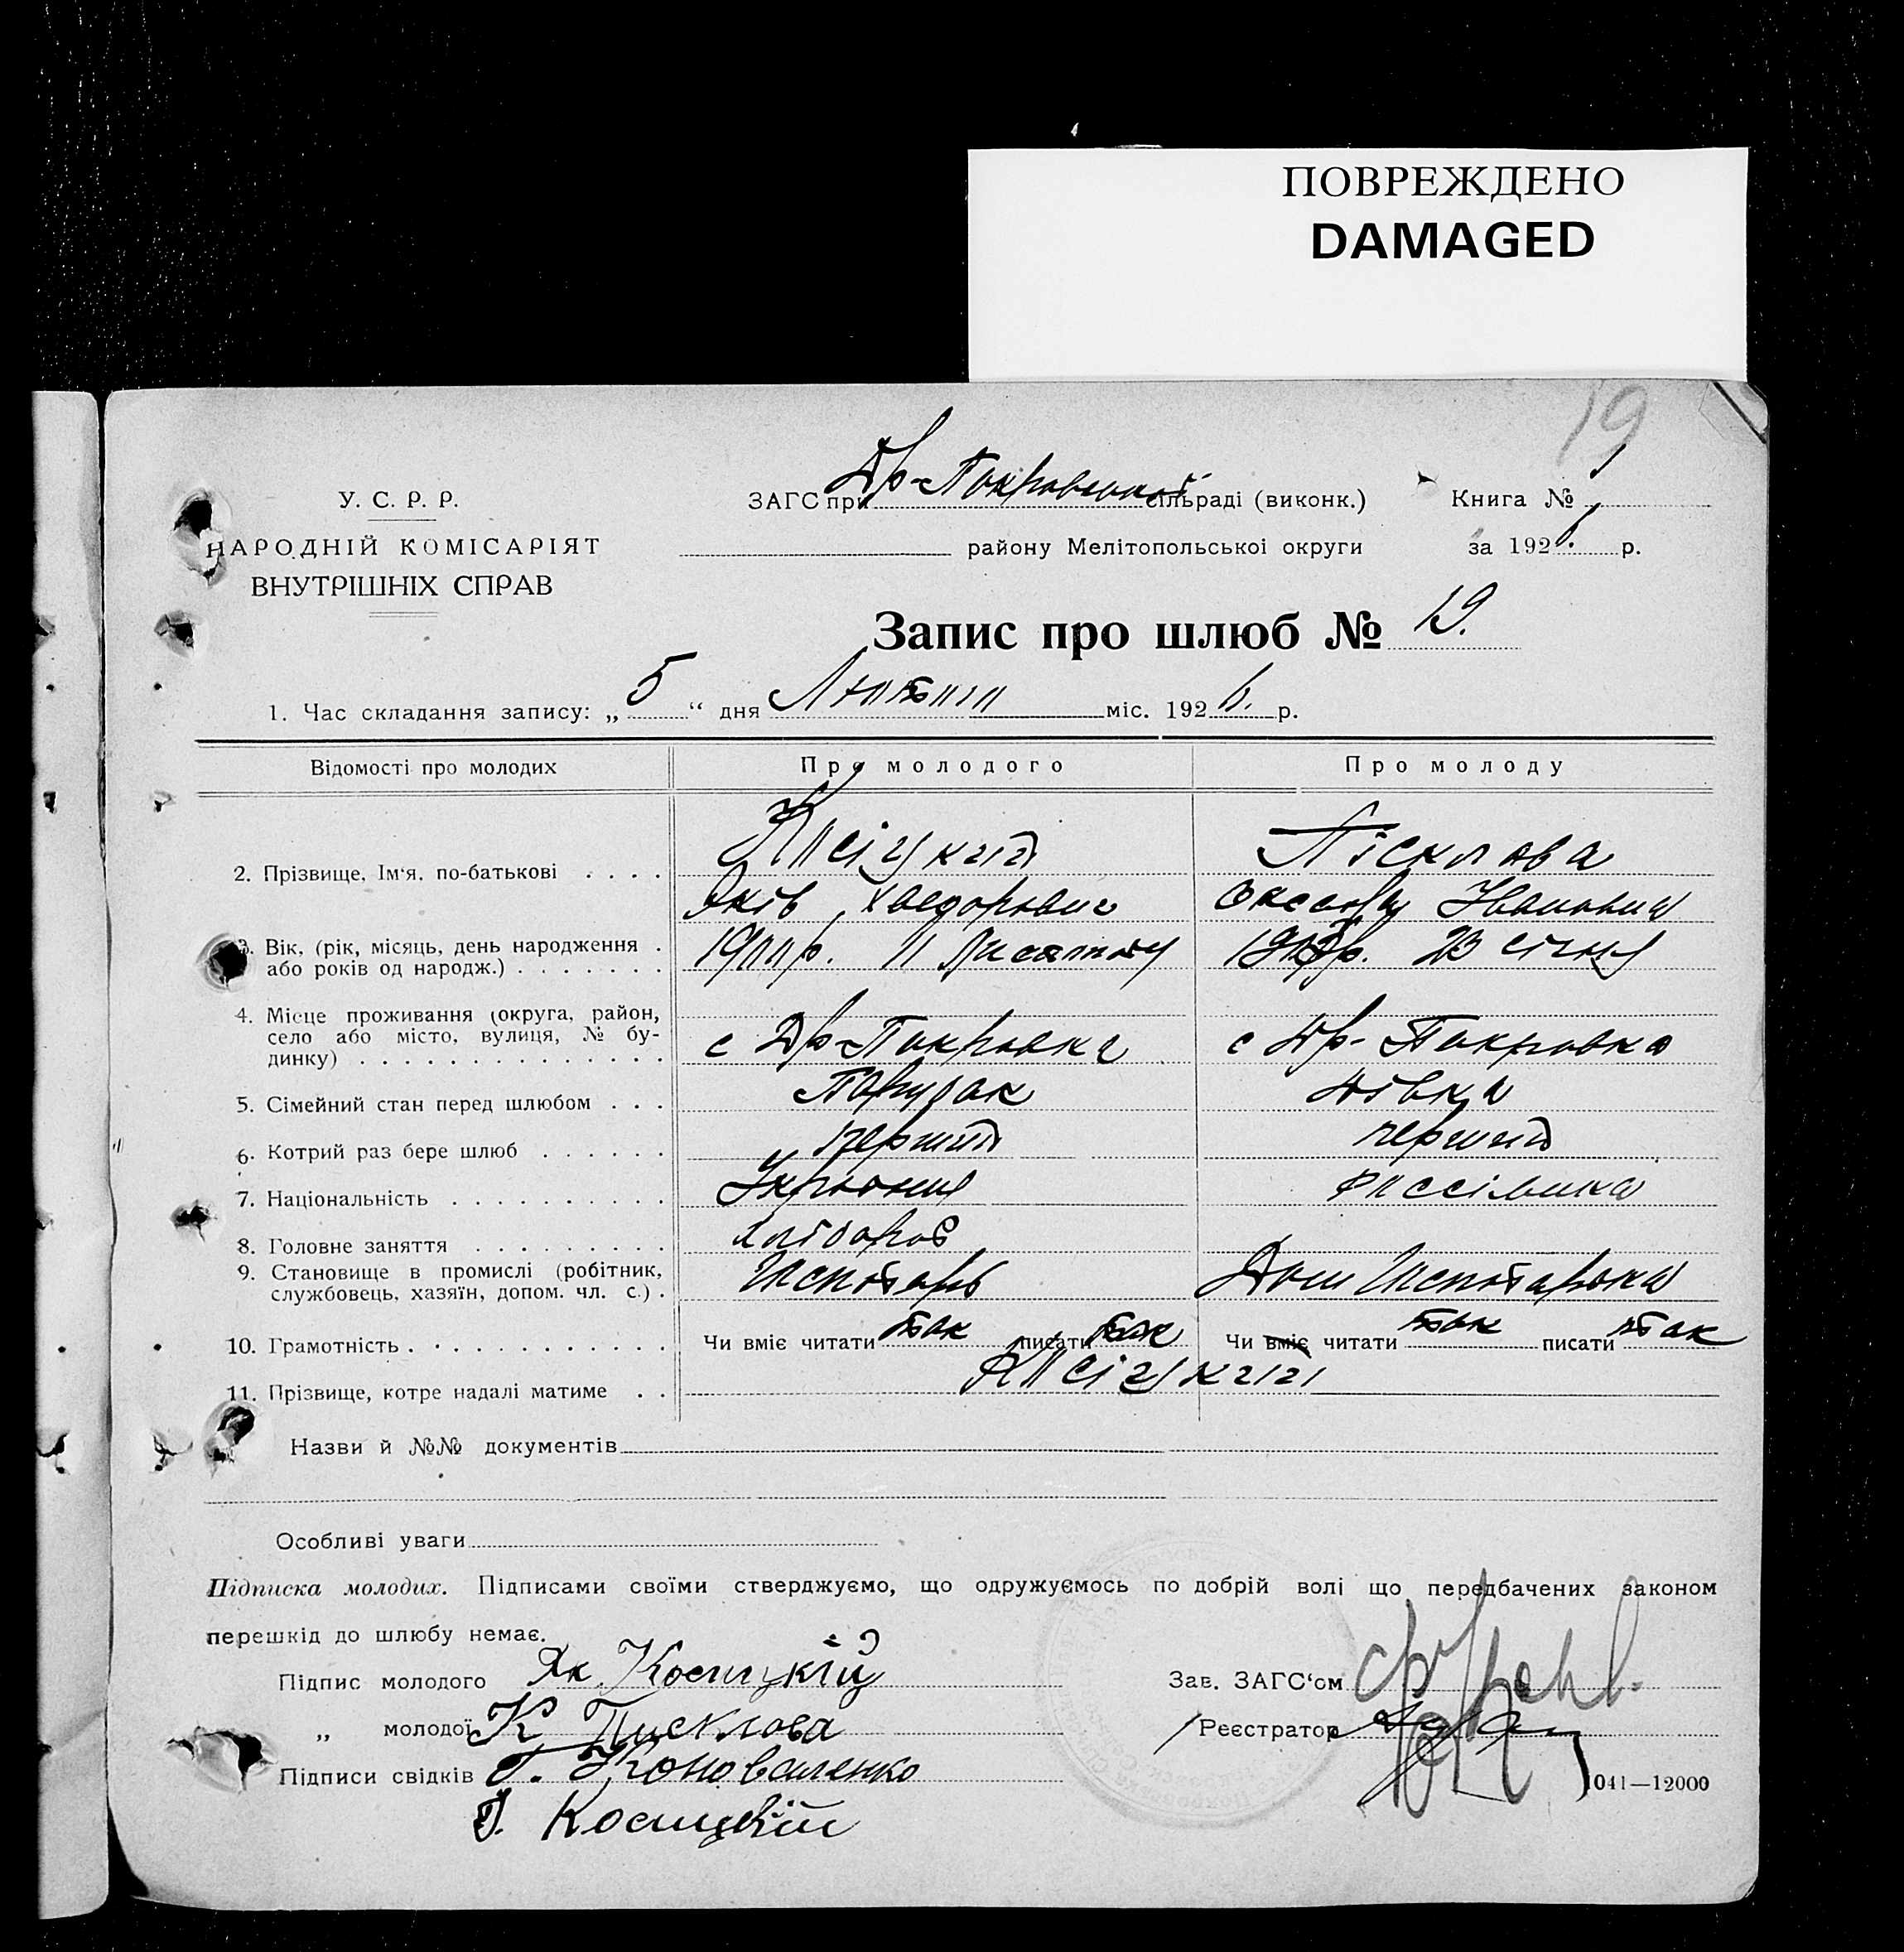 ПОВРЕЖДЕНО
DAMAGED
19
У. С. Р. Р.
НАРОДНІЙ КОМІСАРІЯТ
ВНУТРІШНІХ СПРАВ
ЗАГС при Др-Покровской сільраді (виконк.)
району Мелітопольскої округи
Книга № 1
за 1926. р.
Запис про шлюб № 19.
1. Час складання запису: „ 5 “ дня Лютого міс. 1926. р.
Відомості про молодих
Про молодого
Про молоду
2. Прізвище, Ім‘я, по-батькові . . . .
Косіцкий
Яків Хведорович
Пісклова
Іванівна
3. Вік, (рік, місяць, день народження .
або років од народж.) . . . . . . .
р. 11
23 Січня
4. Місце проживання (округа, район,
село або місто, вулиця, № бу-
динку) . . . . . . . . . . . . . .
с Др-Покровка
с Др-Покровка
5. Сімейний стан перед шлюбом . . .
Парубак
Дівка
6. Котрий раз бере шлюб . . . . . .
перший
перший
7. Національність . . . . . . . . . .
8. Головне заняття . . . . . . . . .
хлібороб
9. Становище в промислі (робітник,
службовець, хазяїн, допом. чл. с.) .
10. Грамотність . . . . . . . . . . . .
Чи вміє читати так писати так
Чи вміє читати так писати так
11. Прізвище, котре надалі матиме . .
Косіцкий
Назви й №№ документів
Особливі уваги
Підписка молодих. Підписами своїми стверджуємо, що одружуємось по добрій волі що передбачених законом
перешкід до шлюбу немає.
Підпис молодого Як. Косицкій
„ молодої К Писклова
Підписи свідків Г. Коноваленко
Косицкій
Зав. ЗАГС‘ом
Реєстратор
1041—12000